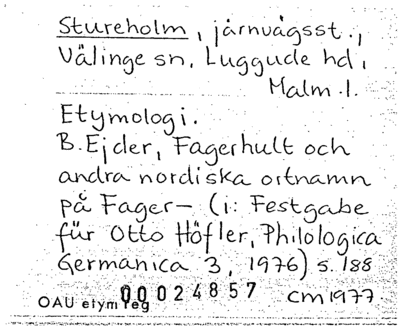 Stureholm, järnvägsst.,
Välinge sn, Luggude hd,
Malm. l.
Etymologi.
B. Ejder, Fagerhult och
andra nordiska ortnamn
på Fager- (i: Festgabe
für Otto Höfler, Philologica
Germanica 3, 1976) s. 188
00024857
OAU etym reg
cm 1977